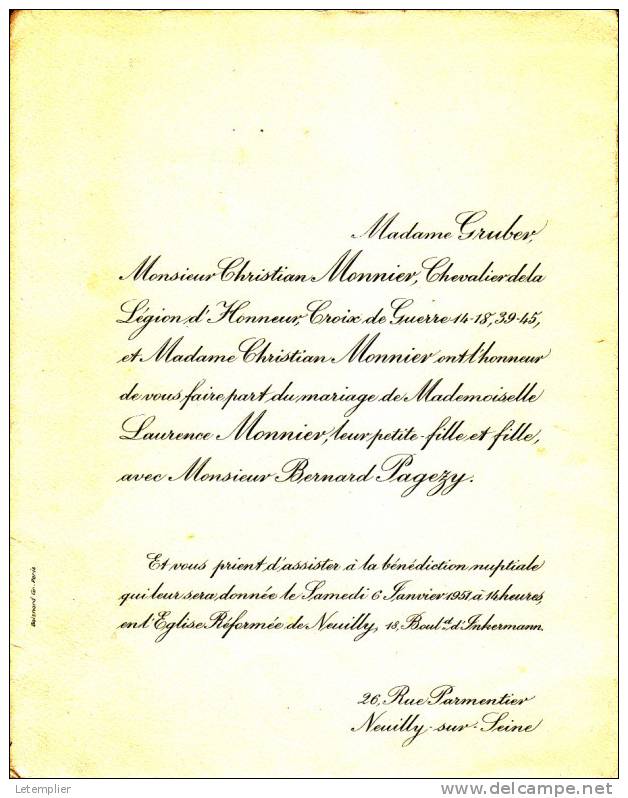 Madame Gruber,
Monsieur Christian Monnier, Chevalier de la
Légion d'Honneur, Croix de Guerre 14-18, 39-45,
et Madame Christian Monnier ont l'honneur
de vous faire part du mariage de Mademoiselle
Laurence Monnier, leur petite-fille et fille,
avec Monsieur Bernard Pagezy.
Et vous prient d'assister à la bénédiction nuptiale
qui leur sera donnée le Samedi 6 Janvier 1951, à 14 heures,
en l'Eglise Réformée de Neuilly, 18, Boulᵈ d'Inkermann.
26, Rue Parmentier
Neuilly-sur-Seine
Boisnard Gr. Paris
Letemplier
delcampe.net